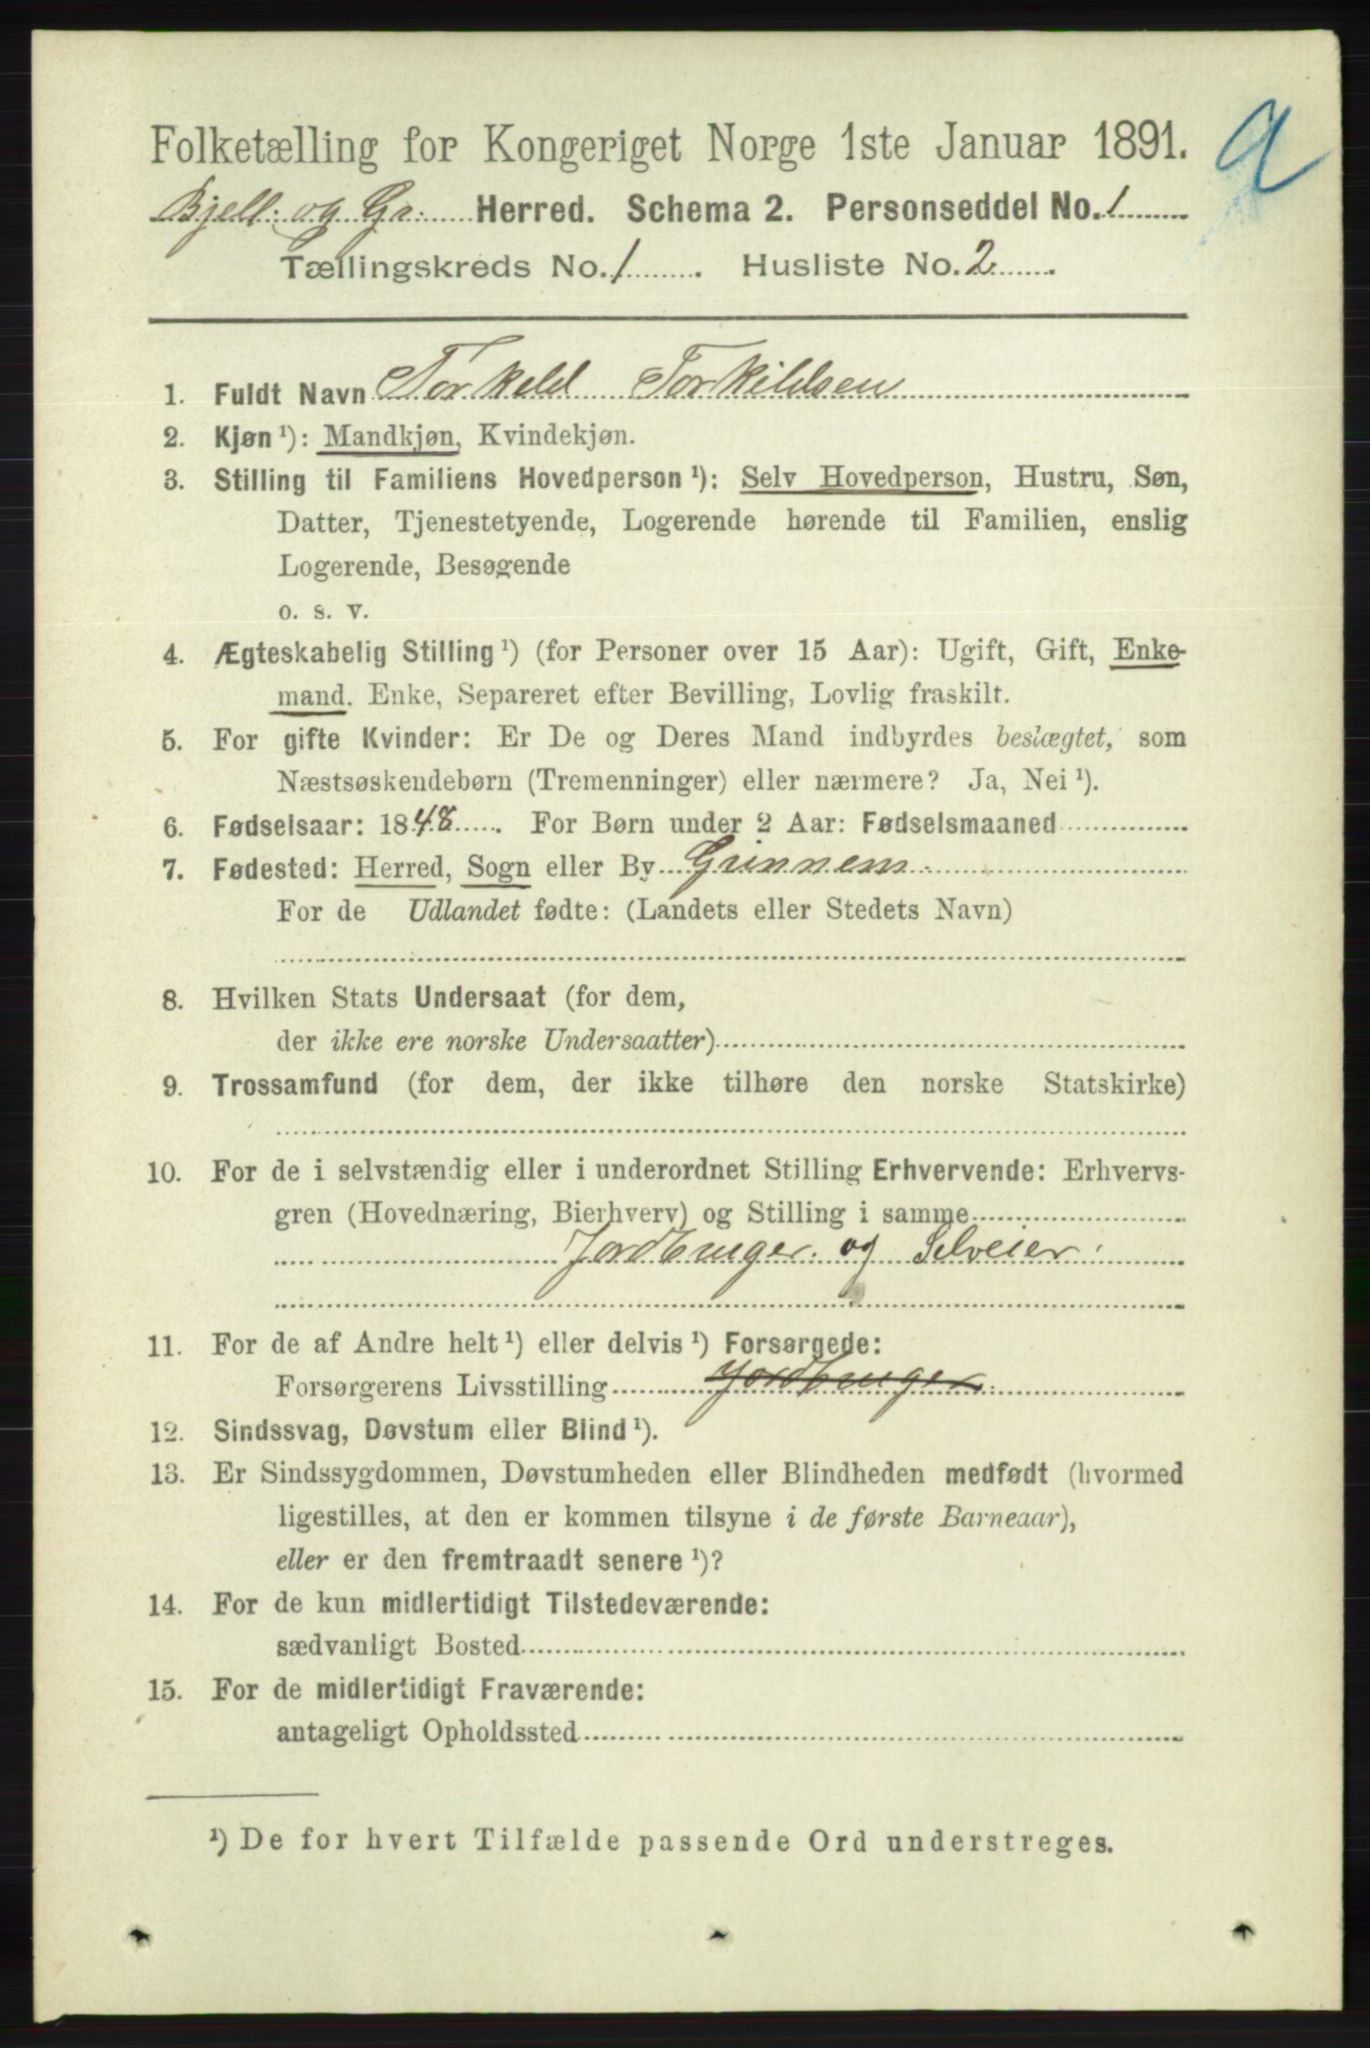 Folketælling for Kongeriget Norge 1ste Januar 1891.
Bjell. og Gr. Herred. Schema 2. Personseddel No. 1
Tællingskreds No. 1. Husliste No. 2
1. Fuldt Navn Torkeld Torkildsen
2. Kjøn ¹): Mandkjøn, Kvindekjøn.
3. Stilling til Familiens Hovedperson ¹): Selv Hovedperson, Hustru, Søn,
Datter, Tjenestetyende, Logerende hørende til Familien, enslig
Logerende, Besøgende
o. s. v.
4. Ægteskabelig Stilling ¹) (for Personer over 15 Aar): Ugift, Gift, Enke-
mand. Enke, Separeret efter Bevilling, Lovlig fraskilt.
5. For gifte Kvinder: Er De og Deres Mand indbyrdes beslægtet, som
Næstsøskendebørn (Tremenninger) eller nærmere? Ja, Nei ¹).
6. Fødselsaar: 1848. For Børn under 2 Aar: Fødselsmaaned
7. Fødested: Herred, Sogn eller By Grinnem
For de Udlandet fødte: (Landets eller Stedets Navn)
8. Hvilken Stats Undersaat (for dem,
der ikke ere norske Undersaatter)
9. Trossamfund (for dem, der ikke tilhøre den norske Statskirke)
10. For de i selvstændig eller i underordnet Stilling Erhvervende: Erhvervs-
gren (Hovednæring, Bierhverv) og Stilling i samme
Jordbruger. og Selveier.
11. For de af Andre helt ¹) eller delvis ¹) Forsørgede:
Forsørgerens Livsstilling Jordbruger
12. Sindssvag, Døvstum eller Blind ¹).
13. Er Sindssygdommen, Døvstumheden eller Blindheden medfødt (hvormed
ligestilles, at den er kommen tilsyne i de første Barneaar),
eller er den fremtraadt senere ¹)?
14. For de kun midlertidigt Tilstedeværende:
sædvanligt Bosted
15. For de midlertidigt Fraværende:
antageligt Opholdssted
¹) De for hvert Tilfælde passende Ord understreges.